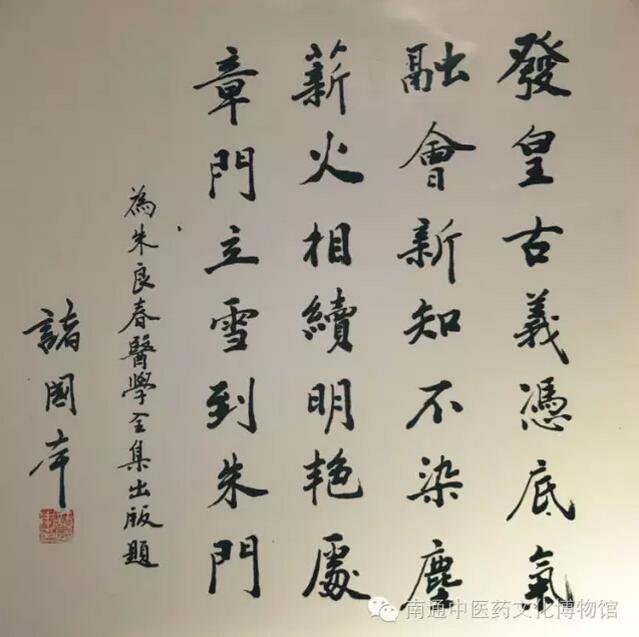 發皇古義憑底氣
融會新知不染塵
薪火相續明艳處
章門立雪到朱門
為朱良春醫學全集出版題
諸國本
南通中医药文化博物馆